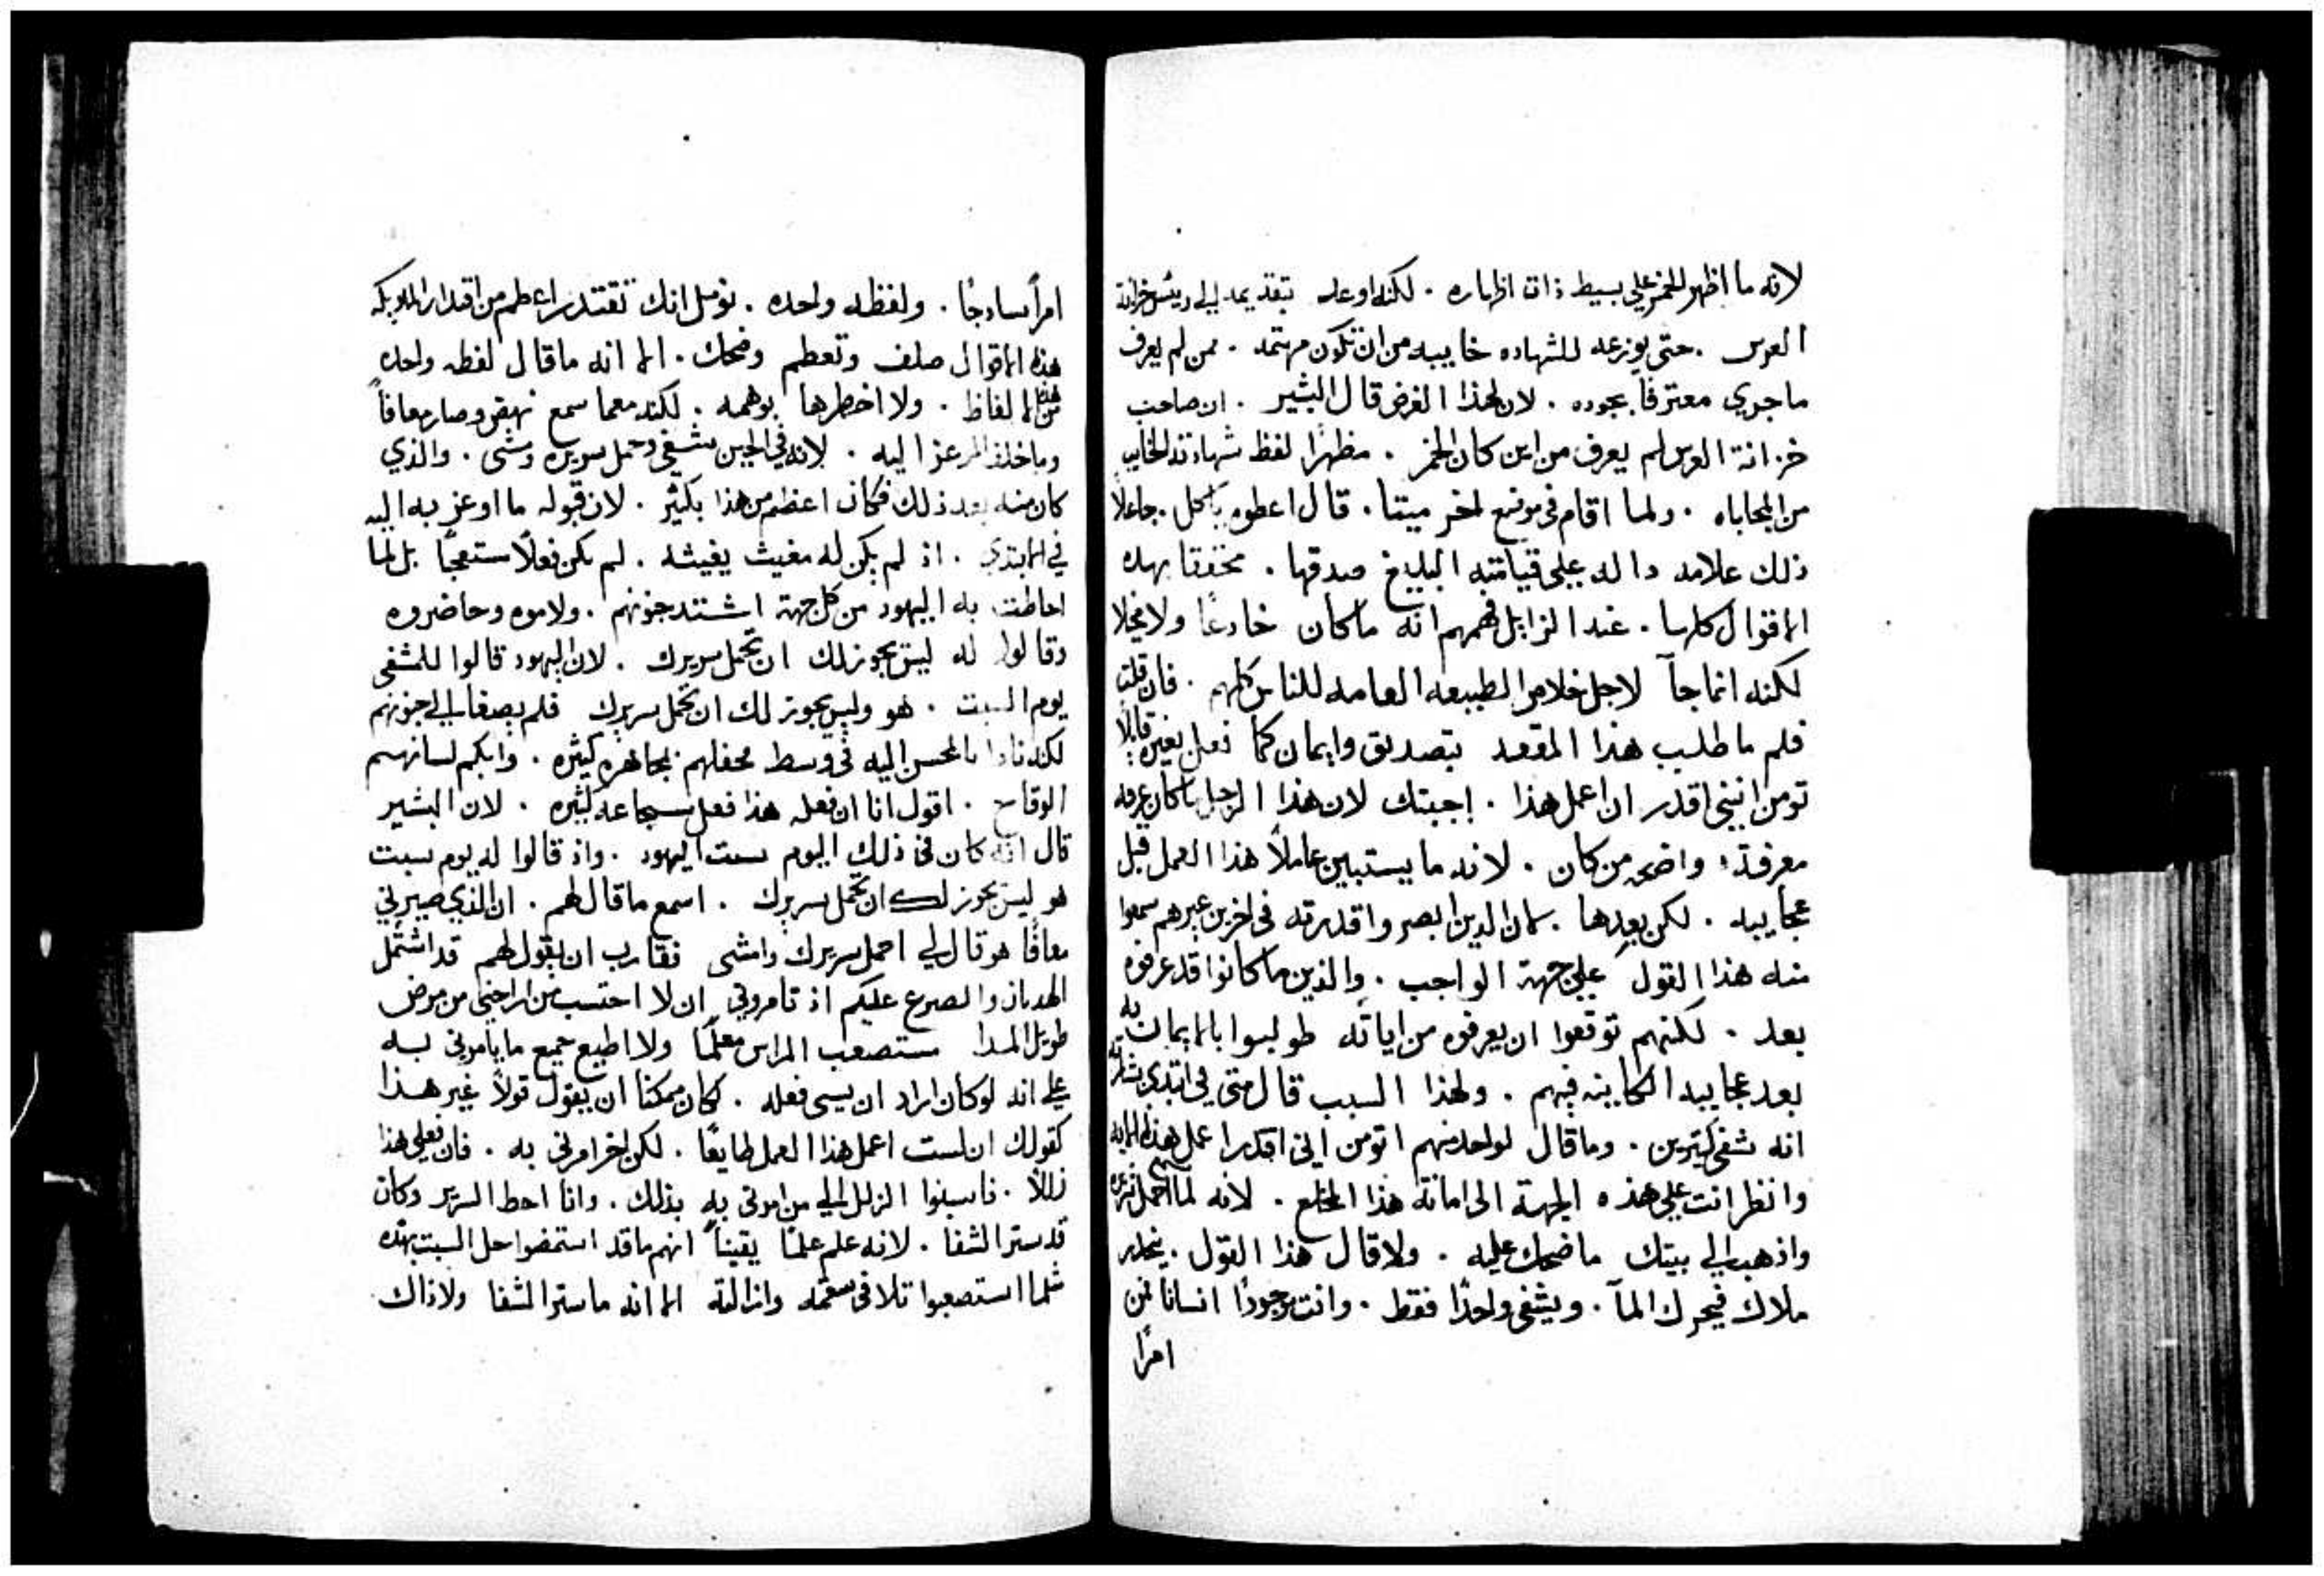 لانه ما اظهر الخمر علي بسيط ذات اظهاره . لكنه اوعد بتقديمه الي رييس خزانة
العرس . حتى يوزعه للشهاده خاييه من ان تكون مهتمه . ممن لم يعرف
ما جري معترفا بجوده . لان لهذا الغرض قال البشير . ان صاحب
خزانة العرس لم يعرف من اين كان الخمر . مظهرا لفظ شهادته الخايب
من المحاباه . ولما اقام في موضع اخر ميتا . قال اعطوه ياكل . جاعلا
ذلك علامه داله علي قيامته البليغ صدقها . محققا بهذه
الاقوال كلها . عند الزايل فهمهم انه ما كان خادعا ولا مخيلا
لكنه انما جآ لاجل خلاص الطبيعه العامه للناس كلهم . فان قلت
فلم ما طلب هذا المقعد بتصديق وايمان كما فعل بغيره قايلا
تومن انني اقدر ان اعمل هذا . اجبتك لان هذا الرجل ما كان عرفه
معرفة واضحه من كان . لانه ما يستبين عاملا هذا العمل قبل
عجاييه . لكن بعدها . لان الدين ابصروا قدرته في اخرين غيرهم سمعوا
منه هذا القول علي جهة الواجب . والذين ما كانوا قد عرفوه
بعد . لكنهم توقعوا ان يعرفوه من اياته طولبوا بالايمان به
بعد عجاييه الكاينه فيهم . ولهذا السبب قال متى في ابتدي بشارته
انه شفى كثيرين . وما قال لواحد منهم اتومن اني اقدر اعمل هذه الايه
وانظر انت علي هذه الجهة الى امانة هذا المخلع . لانه لما سمع احمل سريرك
واذهب الي بيتك ما ضحك عليه . ولا قال هذا القول . ينحدر
ملاك فيحرك المآ . ويشفى واحدا فقط . وانت موجودا انسانا من
امرا
امرا ساذجا . ولفظه واحده . تومل انك تقتدر اعظم من اقتدار الملايكه
هذه الاقوال صلف وتعظم وضحك . الا انه ما قال لفظه واحده
من هذه الالفاظ . ولا اخطرها بوهمه . لكنه معما سمع نهض وصار معافا
وما خلف المرعز اليه . لانه في الحين شفى وحمل سريره ومشى . والذي
كان منه بعد ذلك فكان اعظم من هذا بكثير . لان قبوله ما اوعز به اليه
في الابتدي . اذ لم يكن له مغيث يغيثه . لم يكن فعلا مستعجبا بل لما
احاطت به اليهود من كل جهة اشتد جنونهم . ولاموه وحاضروه
وقالوا له ليس يجوز لك ان تحمل سريرك . لان اليهود قالوا للمشفى
يوم السبت . هو وليس يجوز لك ان تحمل سريرك فلم يصغا الي جنونهم
لكنه نادا بالمحسن اليه في وسط محفلهم بمجاهره كثيره . وابكم لسانهم
الوقاح . اقول انا ان فعله هذا فعل شجاعه كثيره . لان البشير
قال انه كان في ذلك اليوم سبت اليهود . واذ قالوا له يوم سبت
هو ليس يجوز لك ان تحمل سريرك . اسمع ما قال لهم . ان الذي صيرني
معافا هو قال لي احمل سريرك وامشى فقارب ان يقول لهم قد اشتمل
الهديان والصرع عليكم اذ تامروني ان لا احتسب من اراحني من مرض
طويل المدا مستصعب المراس معلما ولا اطيع جميع ما يامرني به
علي انه لو كان اراد ان يسى فعله . لكان ممكنا ان يقول قولا غير هذا
كقولك ان لست اعمل هذا العمل طايعا . لكن اخر امرني به . فان فعلي هذا
زللا . فانسبوا الزلل الي من امرني به بذلك . وانا احط السرير وكان
قد ستر الشفا . لانه علم علما يقينا انهم ما قد استمضوا حل السبت بهذه
مثلما استصعبوا تلافى سقمه وازالته الا انه ما ستر الشفا ولا ذاك